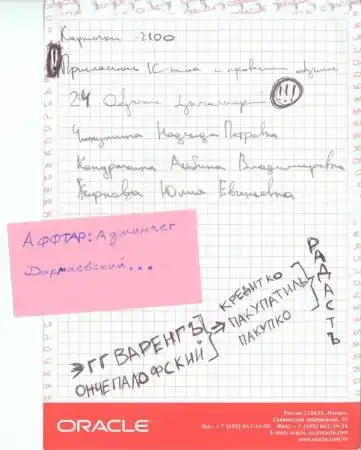 Карточки - 2100
!! Пригласить 1С-ника и провести обучение
24 Обучение (!!!)
Надежда Петровна
Кондрашина Альбина Владимировна
Жаркова Юлия Евгеньевна
АФФТАР: Админчег
Дармаевский...
→ГГ ВАРЕНГЪ
ОНЧЕПАЛОФСКИЙ
КРЕДИТКО
ПАКУПАТИЛЬ
ПАКУПКО
РАДАСТЪ
ORACLE
Россия 119435, Москва,
Саввинская набережная, 15
Тел: +7 (495) 641-14-00 Факс: +7 (495) 641-14-14
www.oracle.com/ru